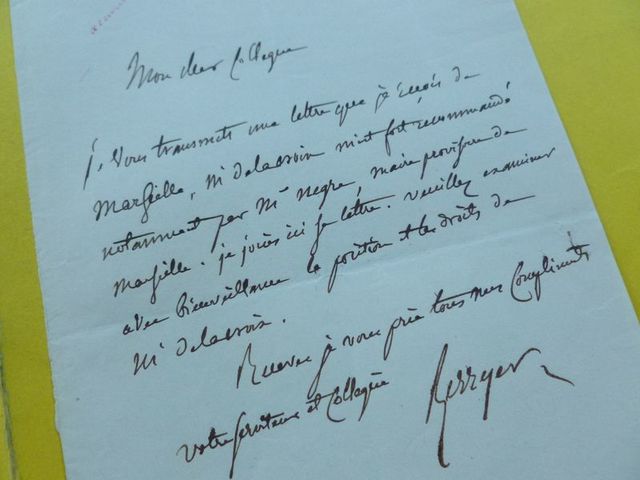 Mon cher Collegue
je vous transmets une lettre que je reçois de
Marseille, Mr delacroix m'est fort recommandé
notamment par Mr negre, maire provisoire de
Marseille. je joins ici sa lettre. veuillez examiner
avec bienveillance la position et les droits de
Mr delacroix.
Recevez je vous prie tous mes Compliments
votre serviteur et Collegue
Berryer